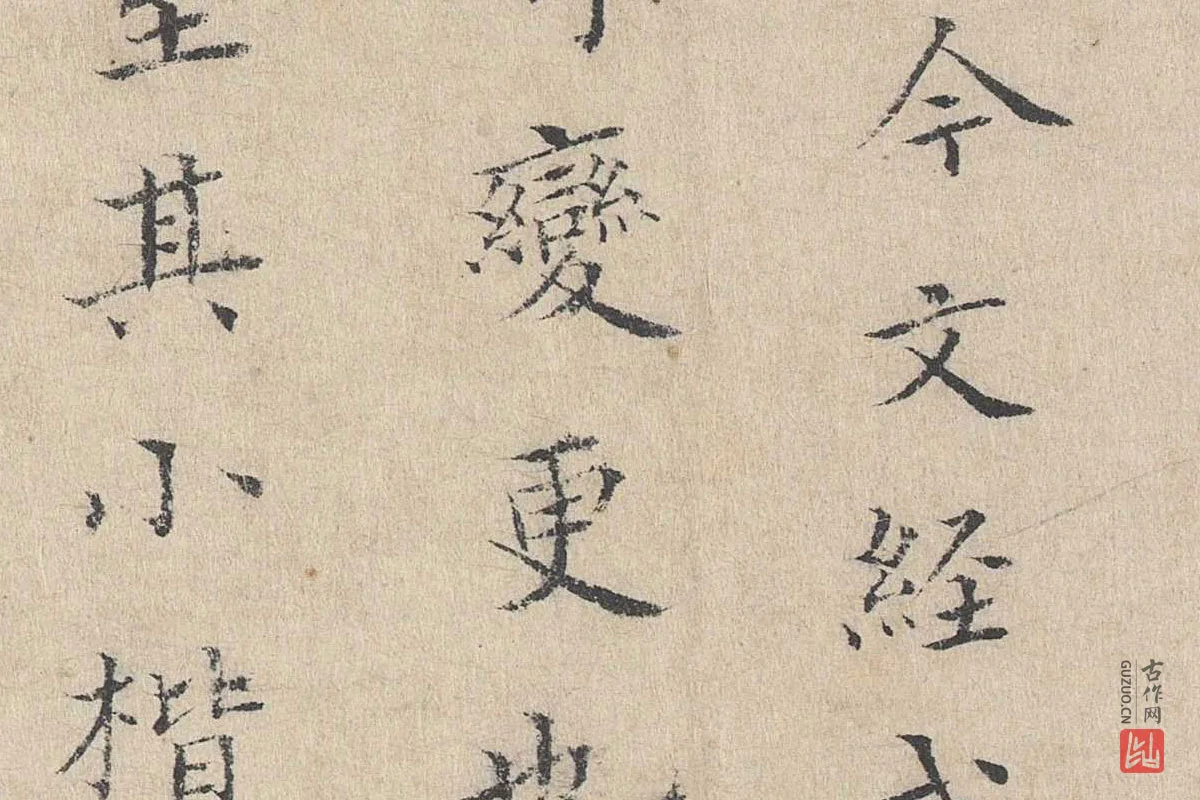 今文経
變更
其小楷
古作网
GUZUO.CN